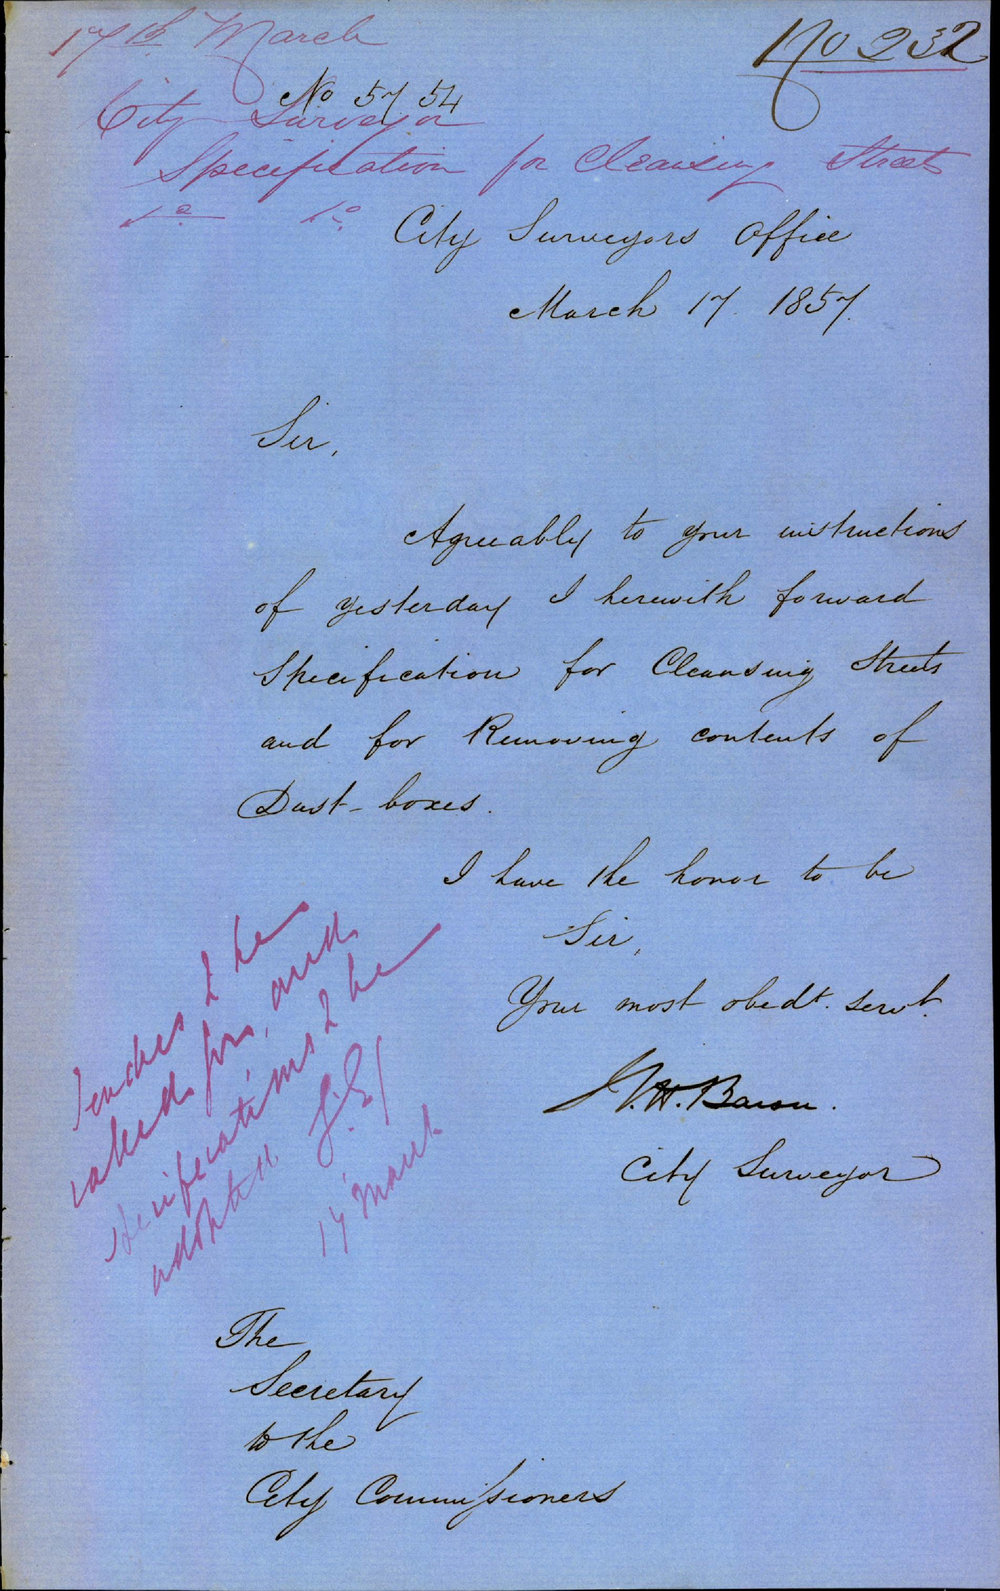 17th March
No 232
No 5754
City Surveyor
Specification for Cleansing Streets
City Surveyors Office
March 17. 1857.
Sir,
Agreeably to your instructions
of yesterday I herewith forward
Specification for Cleansing Streets
and for Removing contents of
Dust-boxes.
I have the honor to be
Sir,
Your most obedt. servt.
City Surveyor
Tenders to be
called for, and
specifications to be
adopted
17 March
The
Secretary
to the
City Commissioners